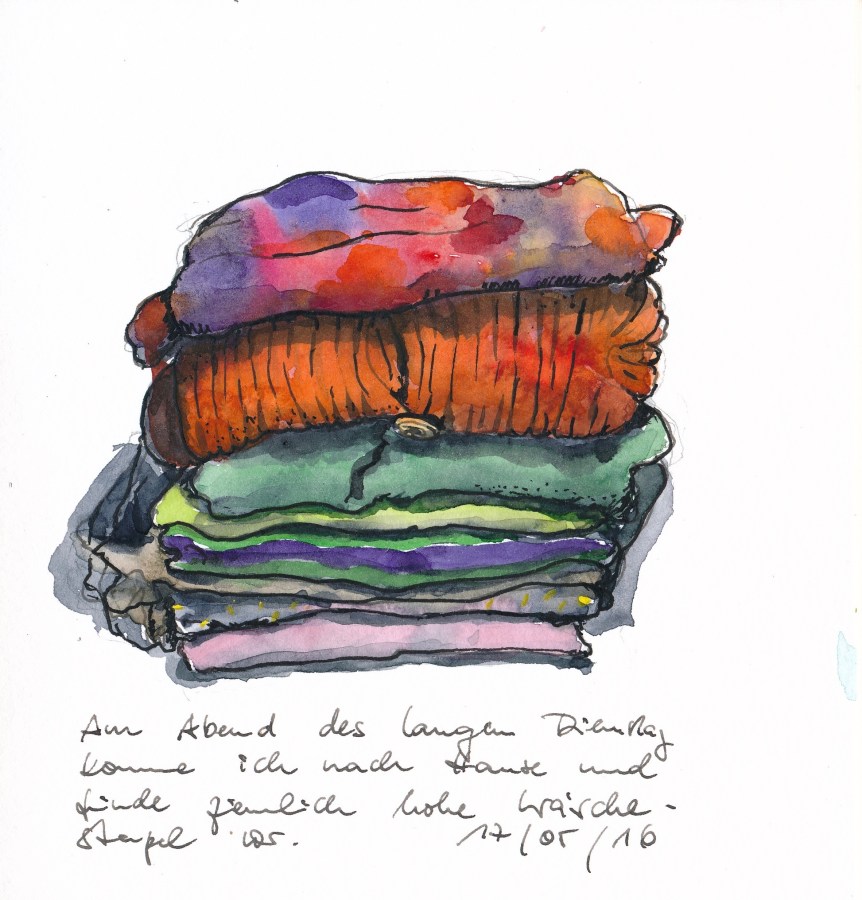 Am Abend des langen Dienstag
komme ich nach Hause und
finde ziemlich hohe Wäsche-
stapel vor. 17/05/16